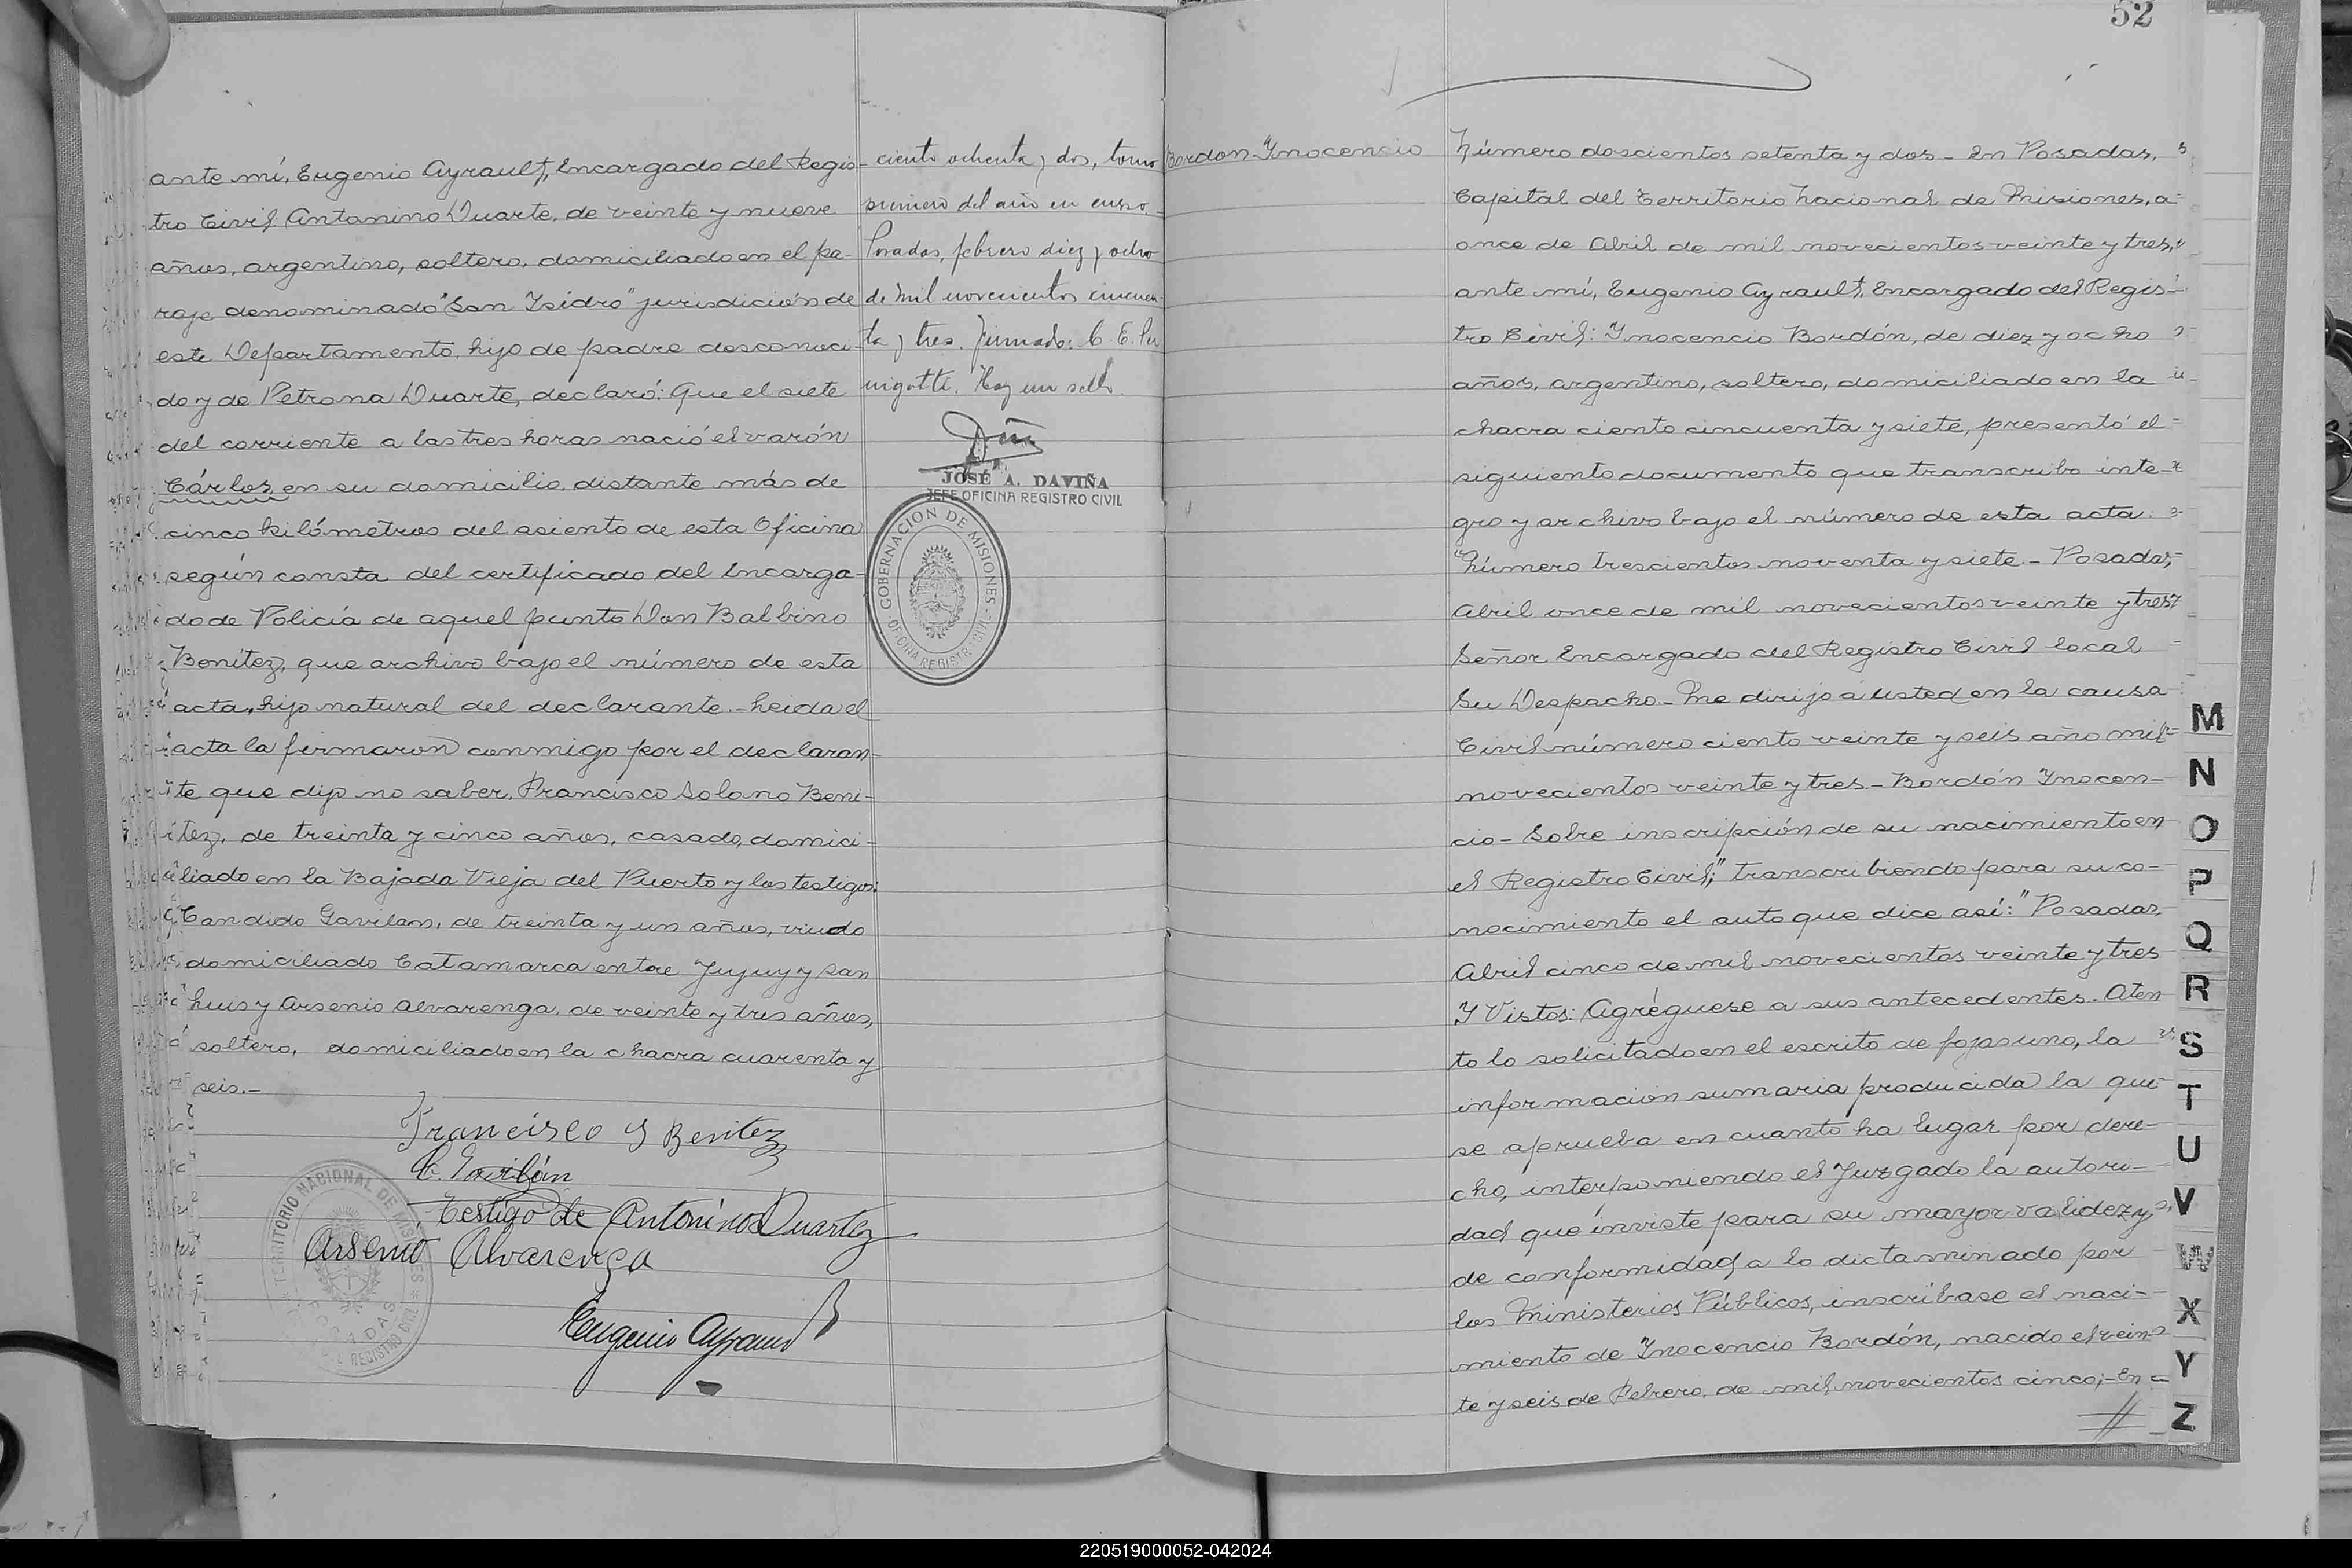 ante mí, Eugenio Ayrault, Encargado del Regis-
tro Civil: Antonino Duarte, de veinte y nueve
años, argentino, soltero, domiciliado en el pa-
raje denominado "San Ysidro" jurisdicion de
este Departamento, hijo de padre desconoci-
do y de Petrona Duarte, declaró: Que el siete
del corriente a las tres horas nació el varón
Cárlos, en su domicilio, distante más de
cinco kilómetros del asiento de esta Oficina
según consta del certificado del Encarga-
do de Policía de aquel punto Don Balbino
Benítez, que archivo bajo el número de esta
acta, hijo natural del declarante.- Leida el
acta la firmaron conmigo por el declaran-
te que dijo no saber, Francisco Solano Beni-
tez, de treinta y cinco años, casado, domici-
liado en la Bajada Vieja del Puerto y los testigos:
Candido Gavilan, de treinta y un años, viudo
domiciliado Catamarca entre Jujuy y San
Luis y Arsenio Alvarenga, de veinte y tres años,
soltero, domiciliado en la chacra cuarenta y
seis.-
Francisco S Benitez
C. Gavilán
Testigo de Antonino Duartez
Arsenio Alvarenga
Eugenio Ayrault
TERRITORIO NACIONAL DE MISIONES
POSADAS
REGISTRO CIVIL
ciento ochenta y dos, tomo
primero del año en curso.
Posadas, febrero diez y ocho
de mil novecientos cincuen-
ta y tres. Firmado: C. E. Pe
rigotti. Hay un sello.
JOSÉ A. DAVIÑA
JEFE OFICINA REGISTRO CIVIL
GOBERNACION DE MISIONES
OFICINA REGISTRO CIVIL
52
Bordon Ynocencio
Número doscientos setenta y dos - En Posadas,
Capital del Territorio Nacional de Misiones, a
once de Abril de mil novecientos veinte y tres,
ante mí, Eugenio Ayrault, Encargado del Regis-
tro Civil: Ynocencio Bordón, de diez y ocho
años, argentino, soltero, domiciliado en la
chacra ciento cincuenta y siete, presentó el
siguiente documento que transcribo inte-
gro y archivo bajo el número de esta acta:
"Número trescientos noventa y siete - Posadas,
Abril once de mil novecientos veinte y tres
Señor Encargado del Registro Civil local
Su Despacho - Me dirijo a usted en la causa
Civil número ciento veinte y seis año mil
novecientos veinte y tres - Bordón Ynocen-
cio - Sobre inscripción de su nacimiento en
el Registro Civil;" transcribiendo para su co-
nocimiento el auto que dice así: "Posadas,
Abril cinco de mil novecientos veinte y tres
Y Vistos: Agréguese a sus antecedentes. Aten
to lo solicitado en el escrito de fojas uno, la
informacion sumaria producida la que
se aprueba en cuanto ha lugar por dere-
cho, interponiendo el Juzgado la autori-
dad que inviste para su mayor validez y
de conformidad a lo dictaminado por
los Ministerios Públicos, inscribase el naci-
miento de Ynocencio Bordón, nacido el vein-
te y seis de Febrero, de mil novecientos cinco;- En
M
N
O
P
Q
R
S
T
U
V
W
X
Y
Z
220519000052-042024